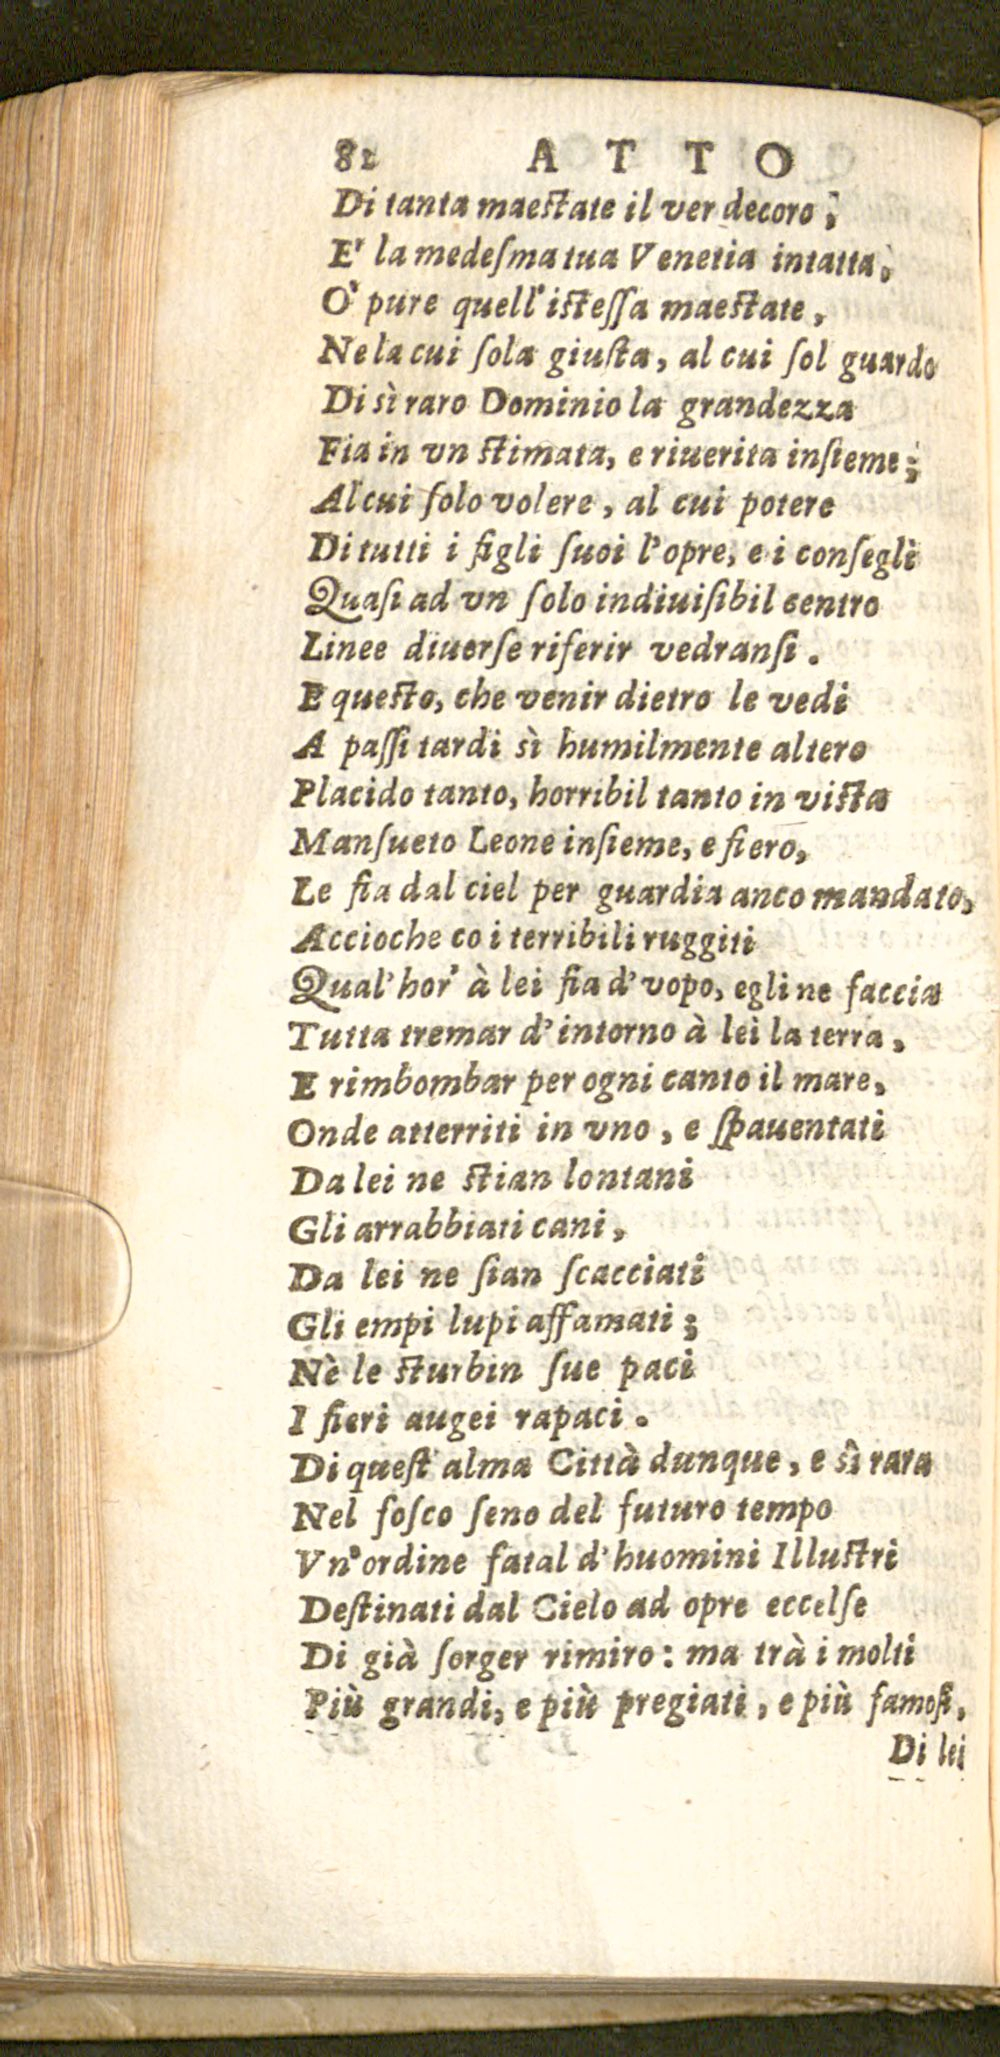 82 ATTO
Di tanta maestate il ver decoro;
E' la medeſma tua Venetia intatta,
O' pure quell'isteſſa maestate,
Ne la cui ſola giusta, al cui ſol guardo
Di sì raro Dominio la grandezza
Fia in vn stimata, e riuerita inſieme;
Al cui ſolo volere, al cui potere
Di tutti i figli ſuoi l'opre, e i conſegli
Quaſi ad vn ſolo indiuiſibil centro
Linee diuerſe riferir vedranſi.
E questo, che venir dietro le vedi
A paſſi tardi sì humilmente altero
Placido tanto, horribil tanto in vista
Manſueto Leone inſieme, e fiero,
Le fia dal ciel per guardia anco mandato,
Accioche co i terribili ruggiti
Qual'hor' à lei fia d'vopo, egli ne faccia
Tutta tremar d'intorno à lei la terra,
E rimbombar per ogni canto il mare,
Onde atterriti in vno, e ſpauentati
Da lei ne stian lontani
Gli arrabbiati cani,
Da lei ne ſian ſcacciati
Gli empi lupi affamati;
Nè le sturbin ſue paci
I fieri augei rapaci.
Di quest'alma Città dunque, e sì rara
Nel foſco ſeno del futuro tempo
Vn'ordine fatal d'huomini Illustri
Destinati dal Cielo ad opre eccelſe
Di già ſorger rimiro: ma trà i molti
Più grandi, e più pregiati, e più famoſi,
Di lei